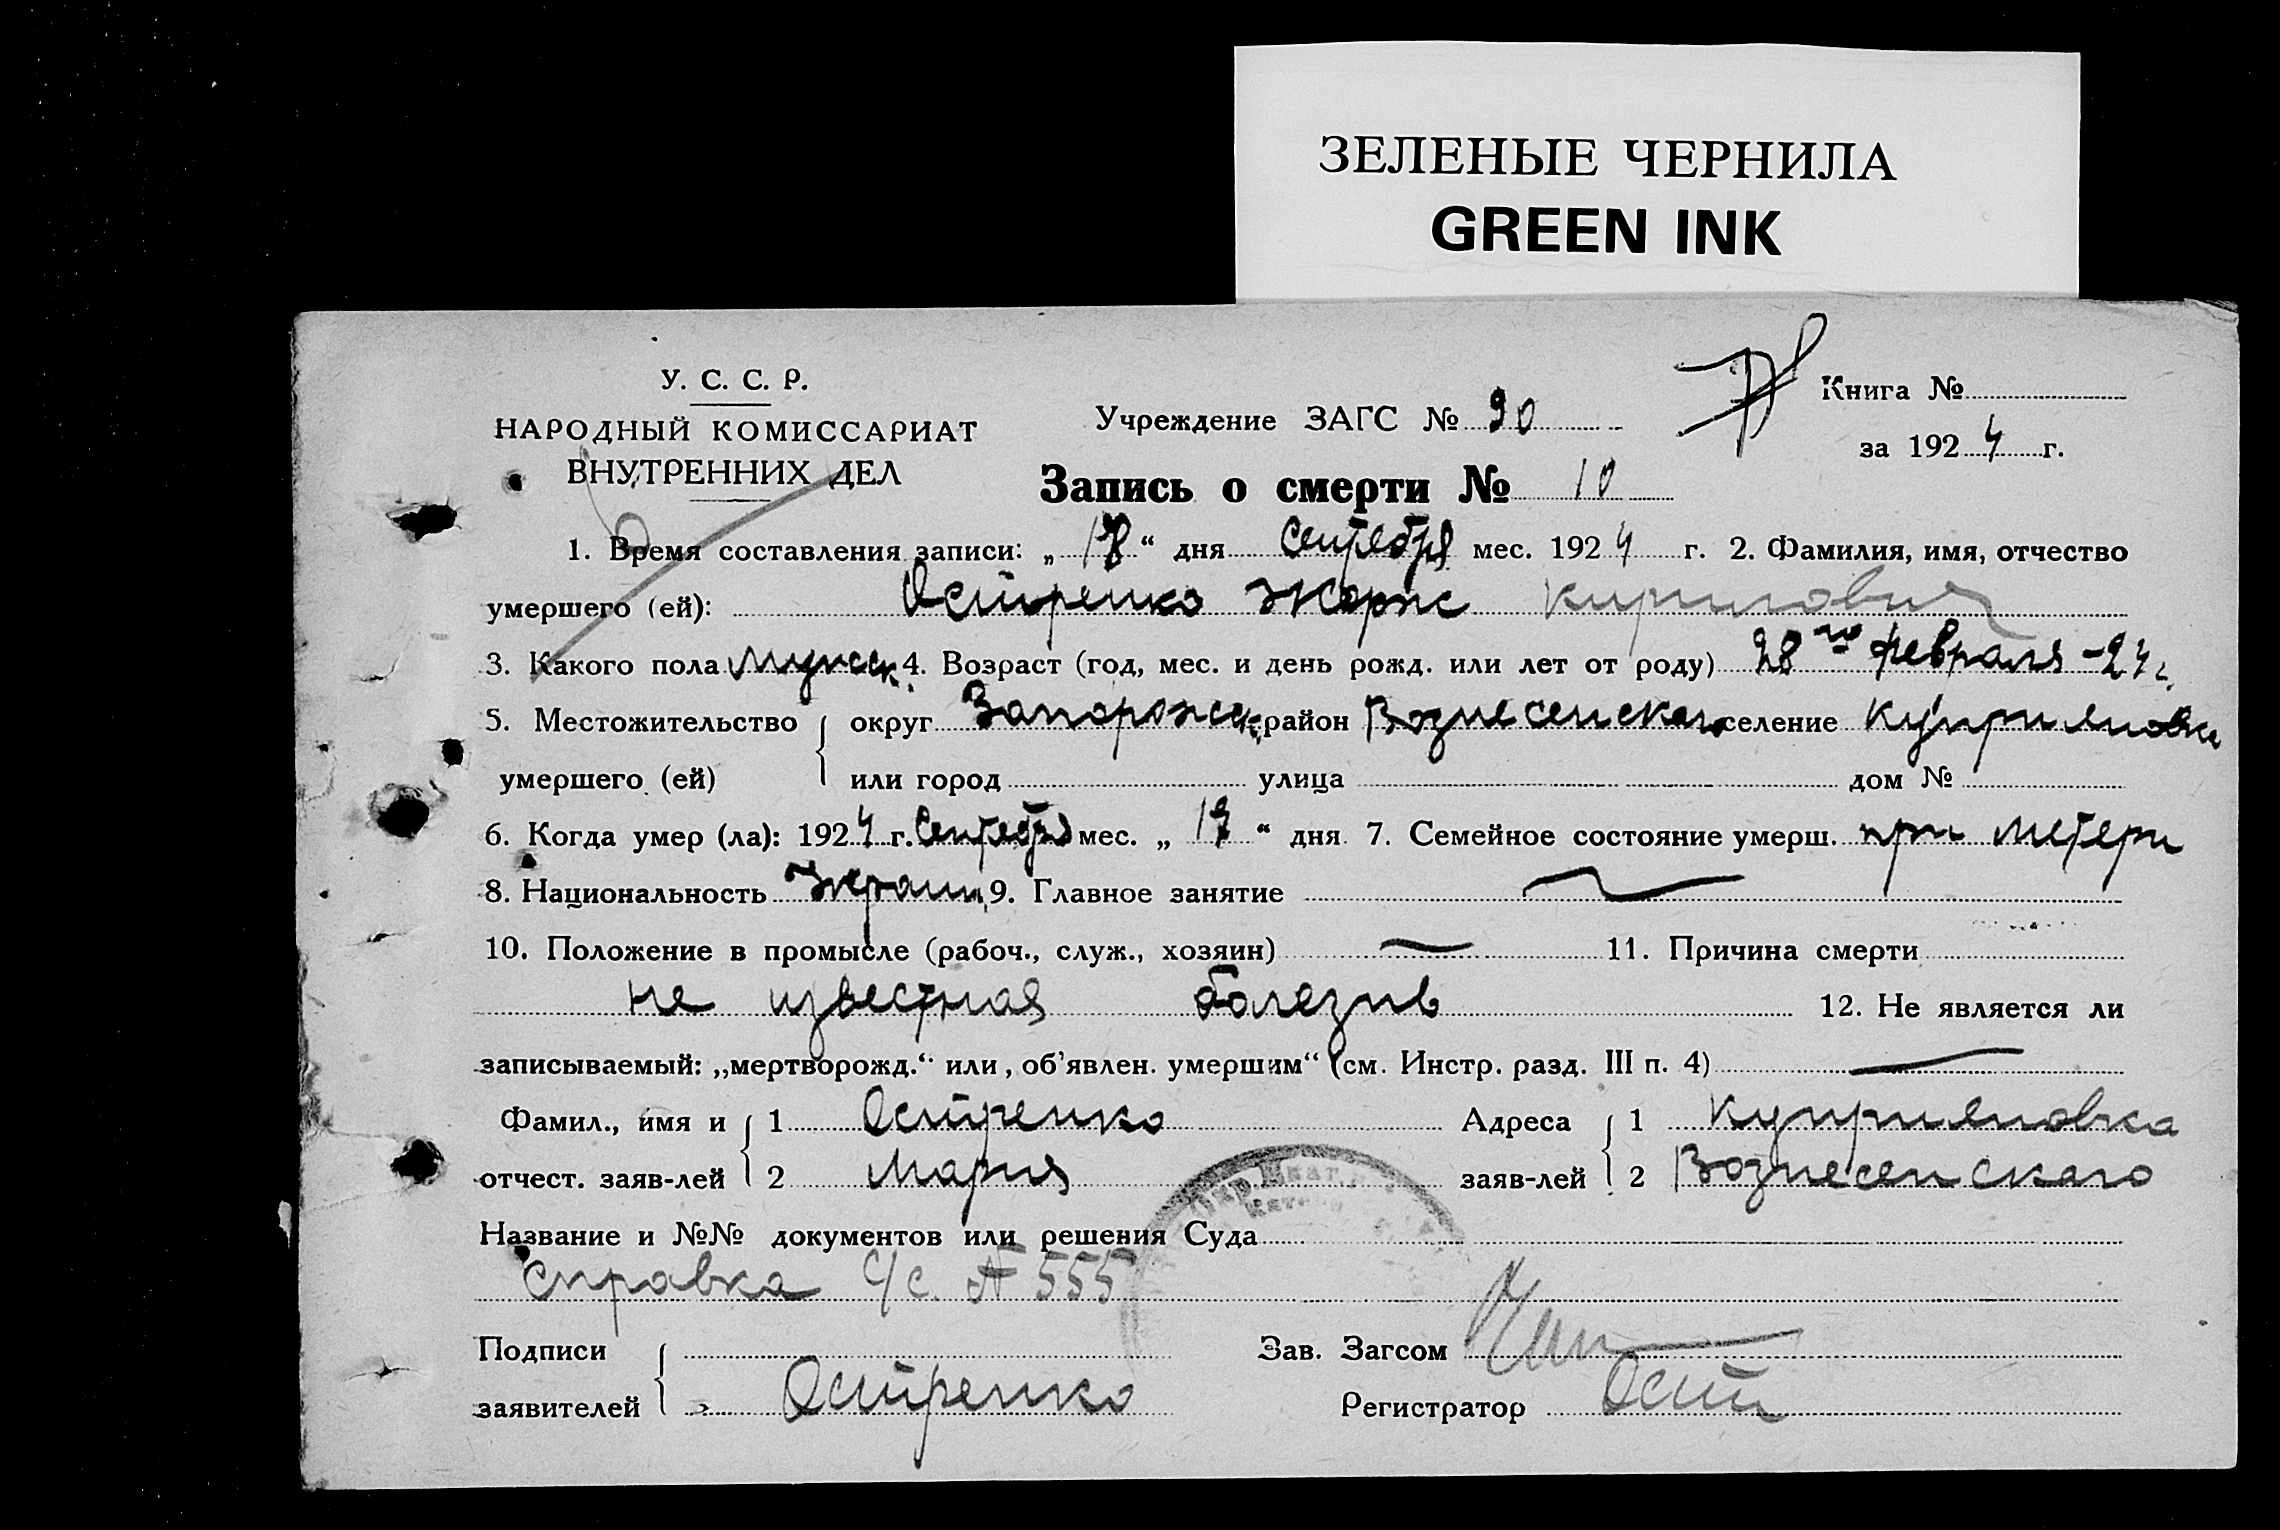 ЗЕЛЕНЫЕ ЧЕРНИЛА
GREEN INK
У. С. С. Р.
НАРОДНЫЙ КОМИССАРИАТ
ВНУТРЕННИХ ДЕЛ
Учреждение ЗАГС № 90
Книга №
за 1924 г.
Запись о смерти № 10
1. Время составления записи: „ 18 “ дня Сентебря мес. 1924 г. 2. Фамилия, имя, отчество
умершего (ей): Остренко Жорж Кирилович
3. Какого пола мужск. 4. Возраст (год, мес. и день рожд. или лет от роду) 28го февраля -24 г.
5. Местожительство округ Запорожск. район Вознесенскаго селение Куприяновка
умершего (ей) или город улица дом №
6. Когда умер (ла): 1924 г. Сентебря мес. „ 17 “ дня 7. Семейное состояние умерш. при метери
8. Национальность Украин. 9. Главное занятие
10. Положение в промысле (рабоч., служ., хозяин) 11. Причина смерти
не известная болезнь 12. Не является ли
записываемый: „мертворожд.“ или, об'явлен. умершим“ (см. Инстр. разд. III п. 4)
Фамил., имя и 1 Остренко Адреса 1 Куприяновка
отчест. заяв-лей 2 Мария заяв-лей 2 Вознесенскаго
Название и №№ документов или решения Суда
справка с/с. № 555
Подписи Зав. Загсом
заявителей Остренко Регистратор